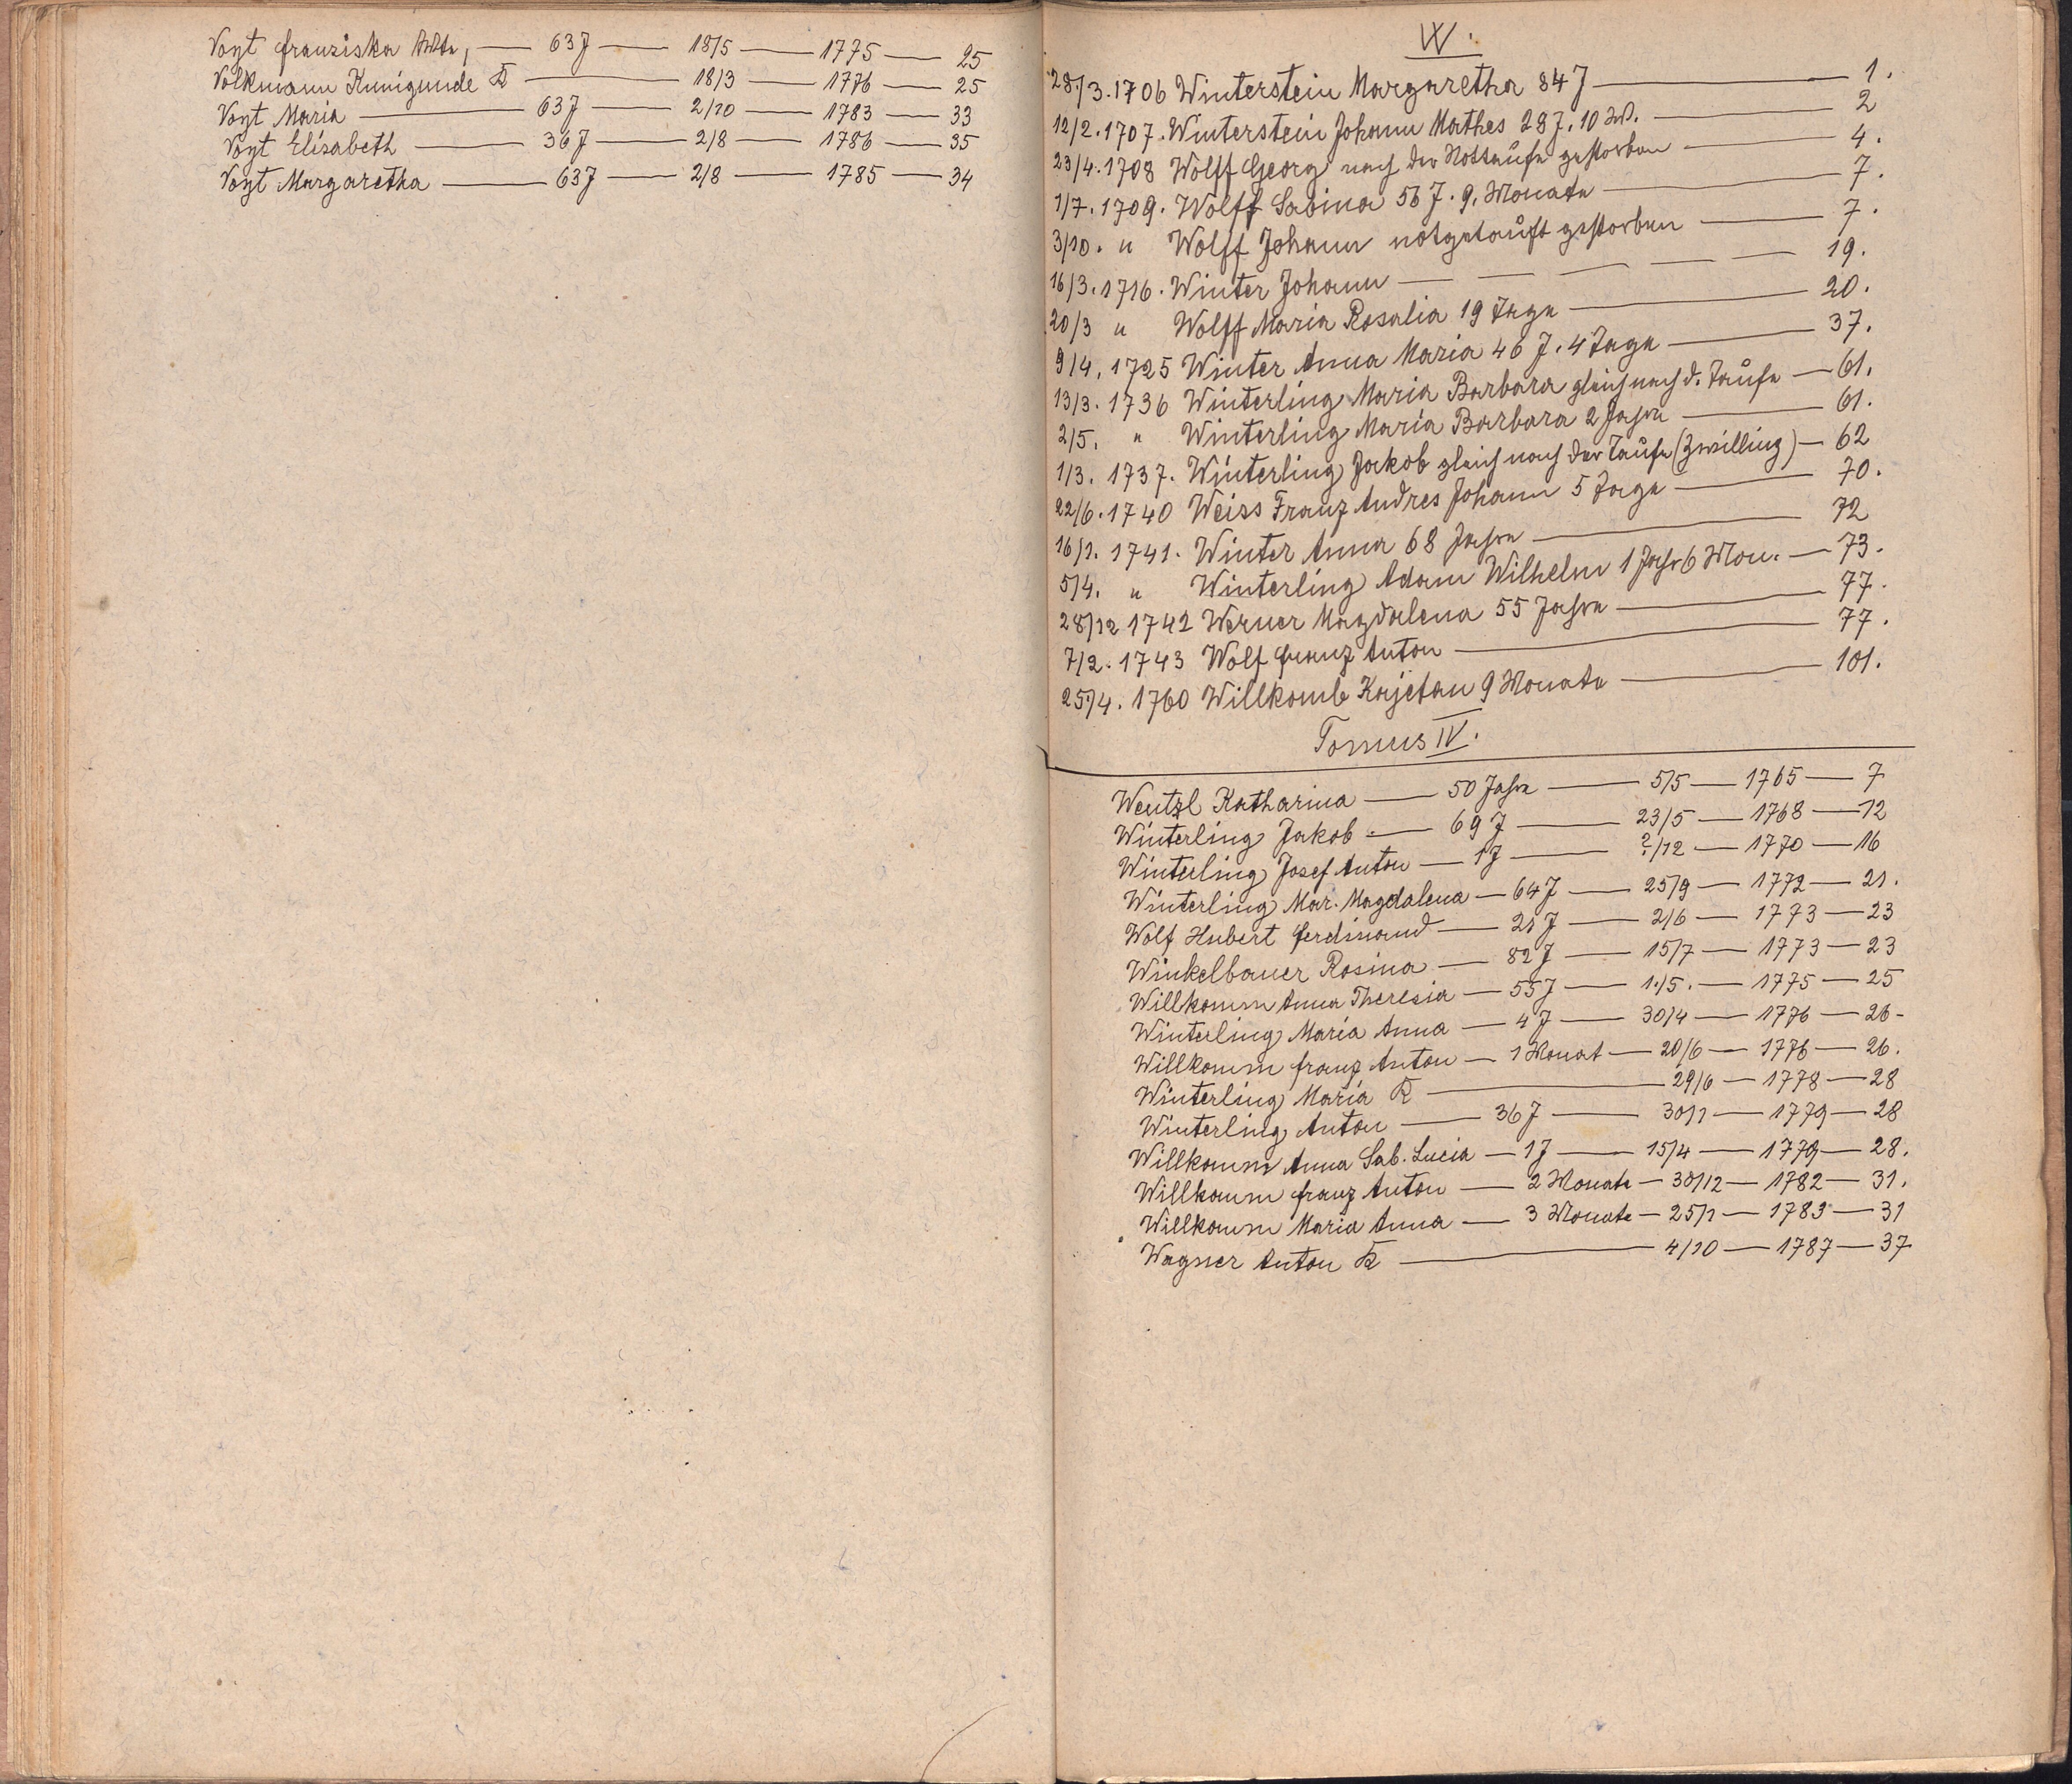 Voyt Franziska Wte, — 63 J — 18/5 — 1775 — 25
Volkmann Kunigunde K — 18/3 — 1776 — 25
Voyt Maria — 63 J — 2/10 — 1783 — 33
Voyt Elisabeth — 36 J — 2/8 — 1786 — 35
Voyt Margaretha — 63 J — 2/8 — 1785 — 34
W.
28/3. 1706 Winterstein Margaretha 84 J — 1.
12/2. 1707. Winterstein Johann Mathes 28 J. 10 W. — 2
23/4. 1708 Wolff Georg nach der Nottaufe gestorben — 4.
1/7. 1709. Wolff Sabina 56 J. 9. Monate — 7.
3/10. " Wolff Johann notgetauft gestorben — 7.
16/3. 1716. Winter Johann — — — — — 19.
20/3 " Wolff Maria Rosalia 19 Tage — 20.
9/4. 1725 Winter Anna Maria 46 J. 4 Tage — 37.
13/3. 1736 Winterling Maria Barbara gleich nach d. Taufe — 61.
2/5. " Winterling Maria Barbara 2 Jahre — 61.
1/3. 1737. Winterling Jakob gleich nach der Taufe (Zwilling) — 62
22/6. 1740 Weiss Franz Andres Johann 5 Tage — 70.
16/1. 1741. Winter Anna 68 Jahre — 72
5/4. " Winterling Adam Wilhelm 1 Jahr 6 Mon. — 73.
28/12 1742 Werner Magdalena 55 Jahre — 77.
7/2. 1743 Wolf Franz Anton — 77.
25/4. 1760 Willkomb Kajetan 9 Monate — 101.
Tomus IV.
Wentzl Katharina — 50 Jahre — 5/5 — 1765 — 7
Winterling Jakob — 69 J — 23/5 — 1768 — 12
Winterling Josef Anton — 1 J — ?/12 — 1770 — 16
Winterling Mar. Magdalena — 64 J — 25/9 — 1772 — 21.
Wolf Hubert Ferdinand — 21 J — 2/6 — 1773 — 23
Winkelbauer Rosina — 82 J — 15/7 — 1773 — 23
Willkomm Anna Theresia — 55 J — 1./5. — 1775 — 25
Winterling Maria Anna — 4 J — 30/4 — 1776 — 26 -
Willkomm Franz Anton — 1 Monat — 20/6 — 1776 — 26.
Winterling Maria K — 29/6 — 1778 — 28
Winterling Anton — 36 J — 30/1 — 1779 — 28
Willkomm Anna Sab. Lucia — 1 J — 15/4 — 1779 — 28.
Willkomm Franz Anton — 2 Monate — 30/12 — 1782 — 31.
Willkomm Maria Anna — 3 Monate — 25/1 — 1783 — 31
Wagner Anton K — 4/10 — 1787 — 37